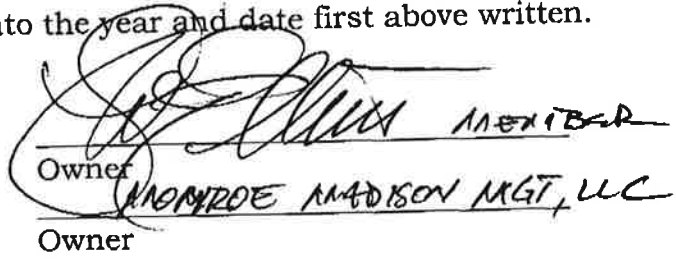 nto the year and date first above written.
MEMBER
Owner
MONROE MADISON MGT, LLC
Owner